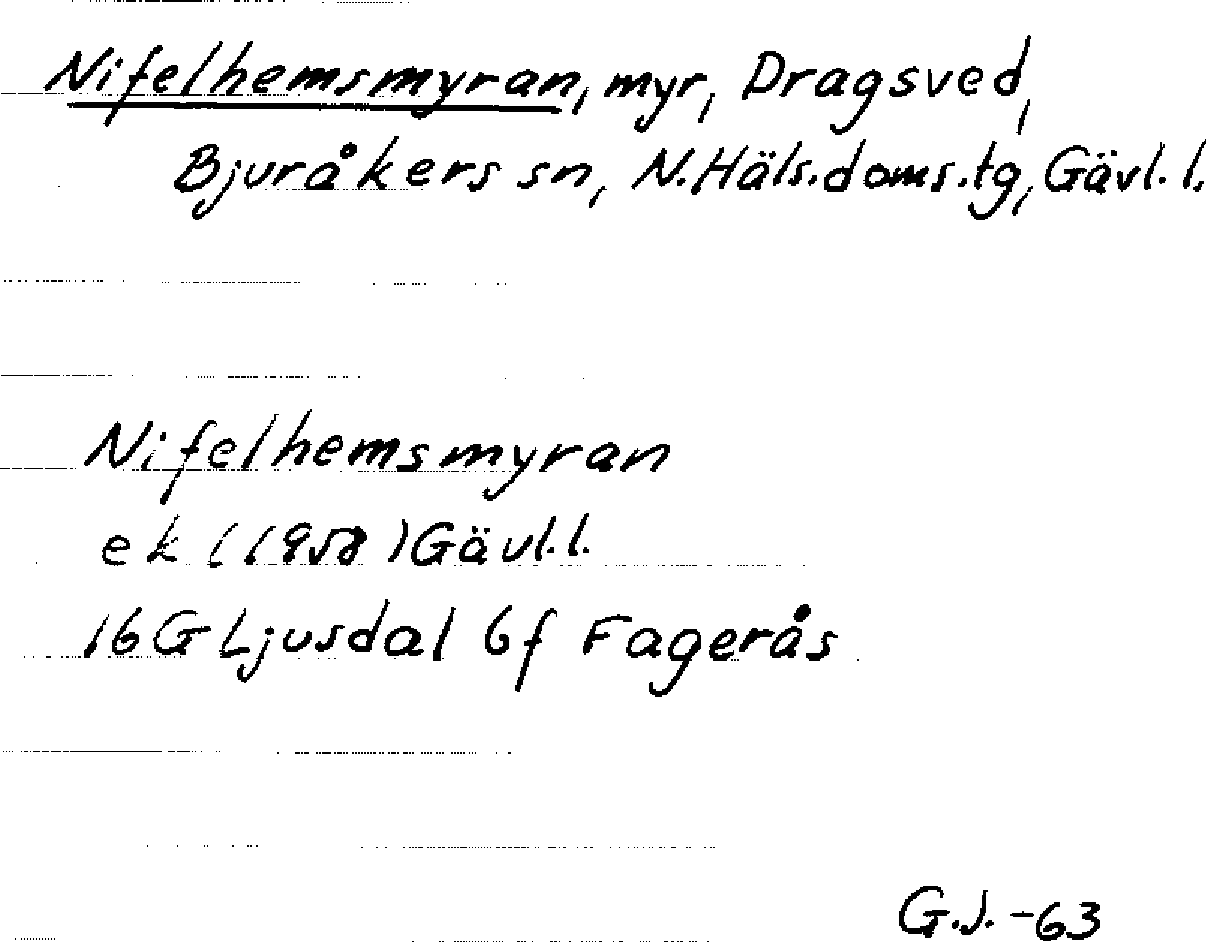 Nifelhemsmyran, myr, Dragsved,
Bjuråkers sn, N. Häls. doms. tg, Gävl. l.
Nifelhemsmyran
ek (1958) Gävl. l.
16G Ljusdal 6f Fagerås
G.J. -63